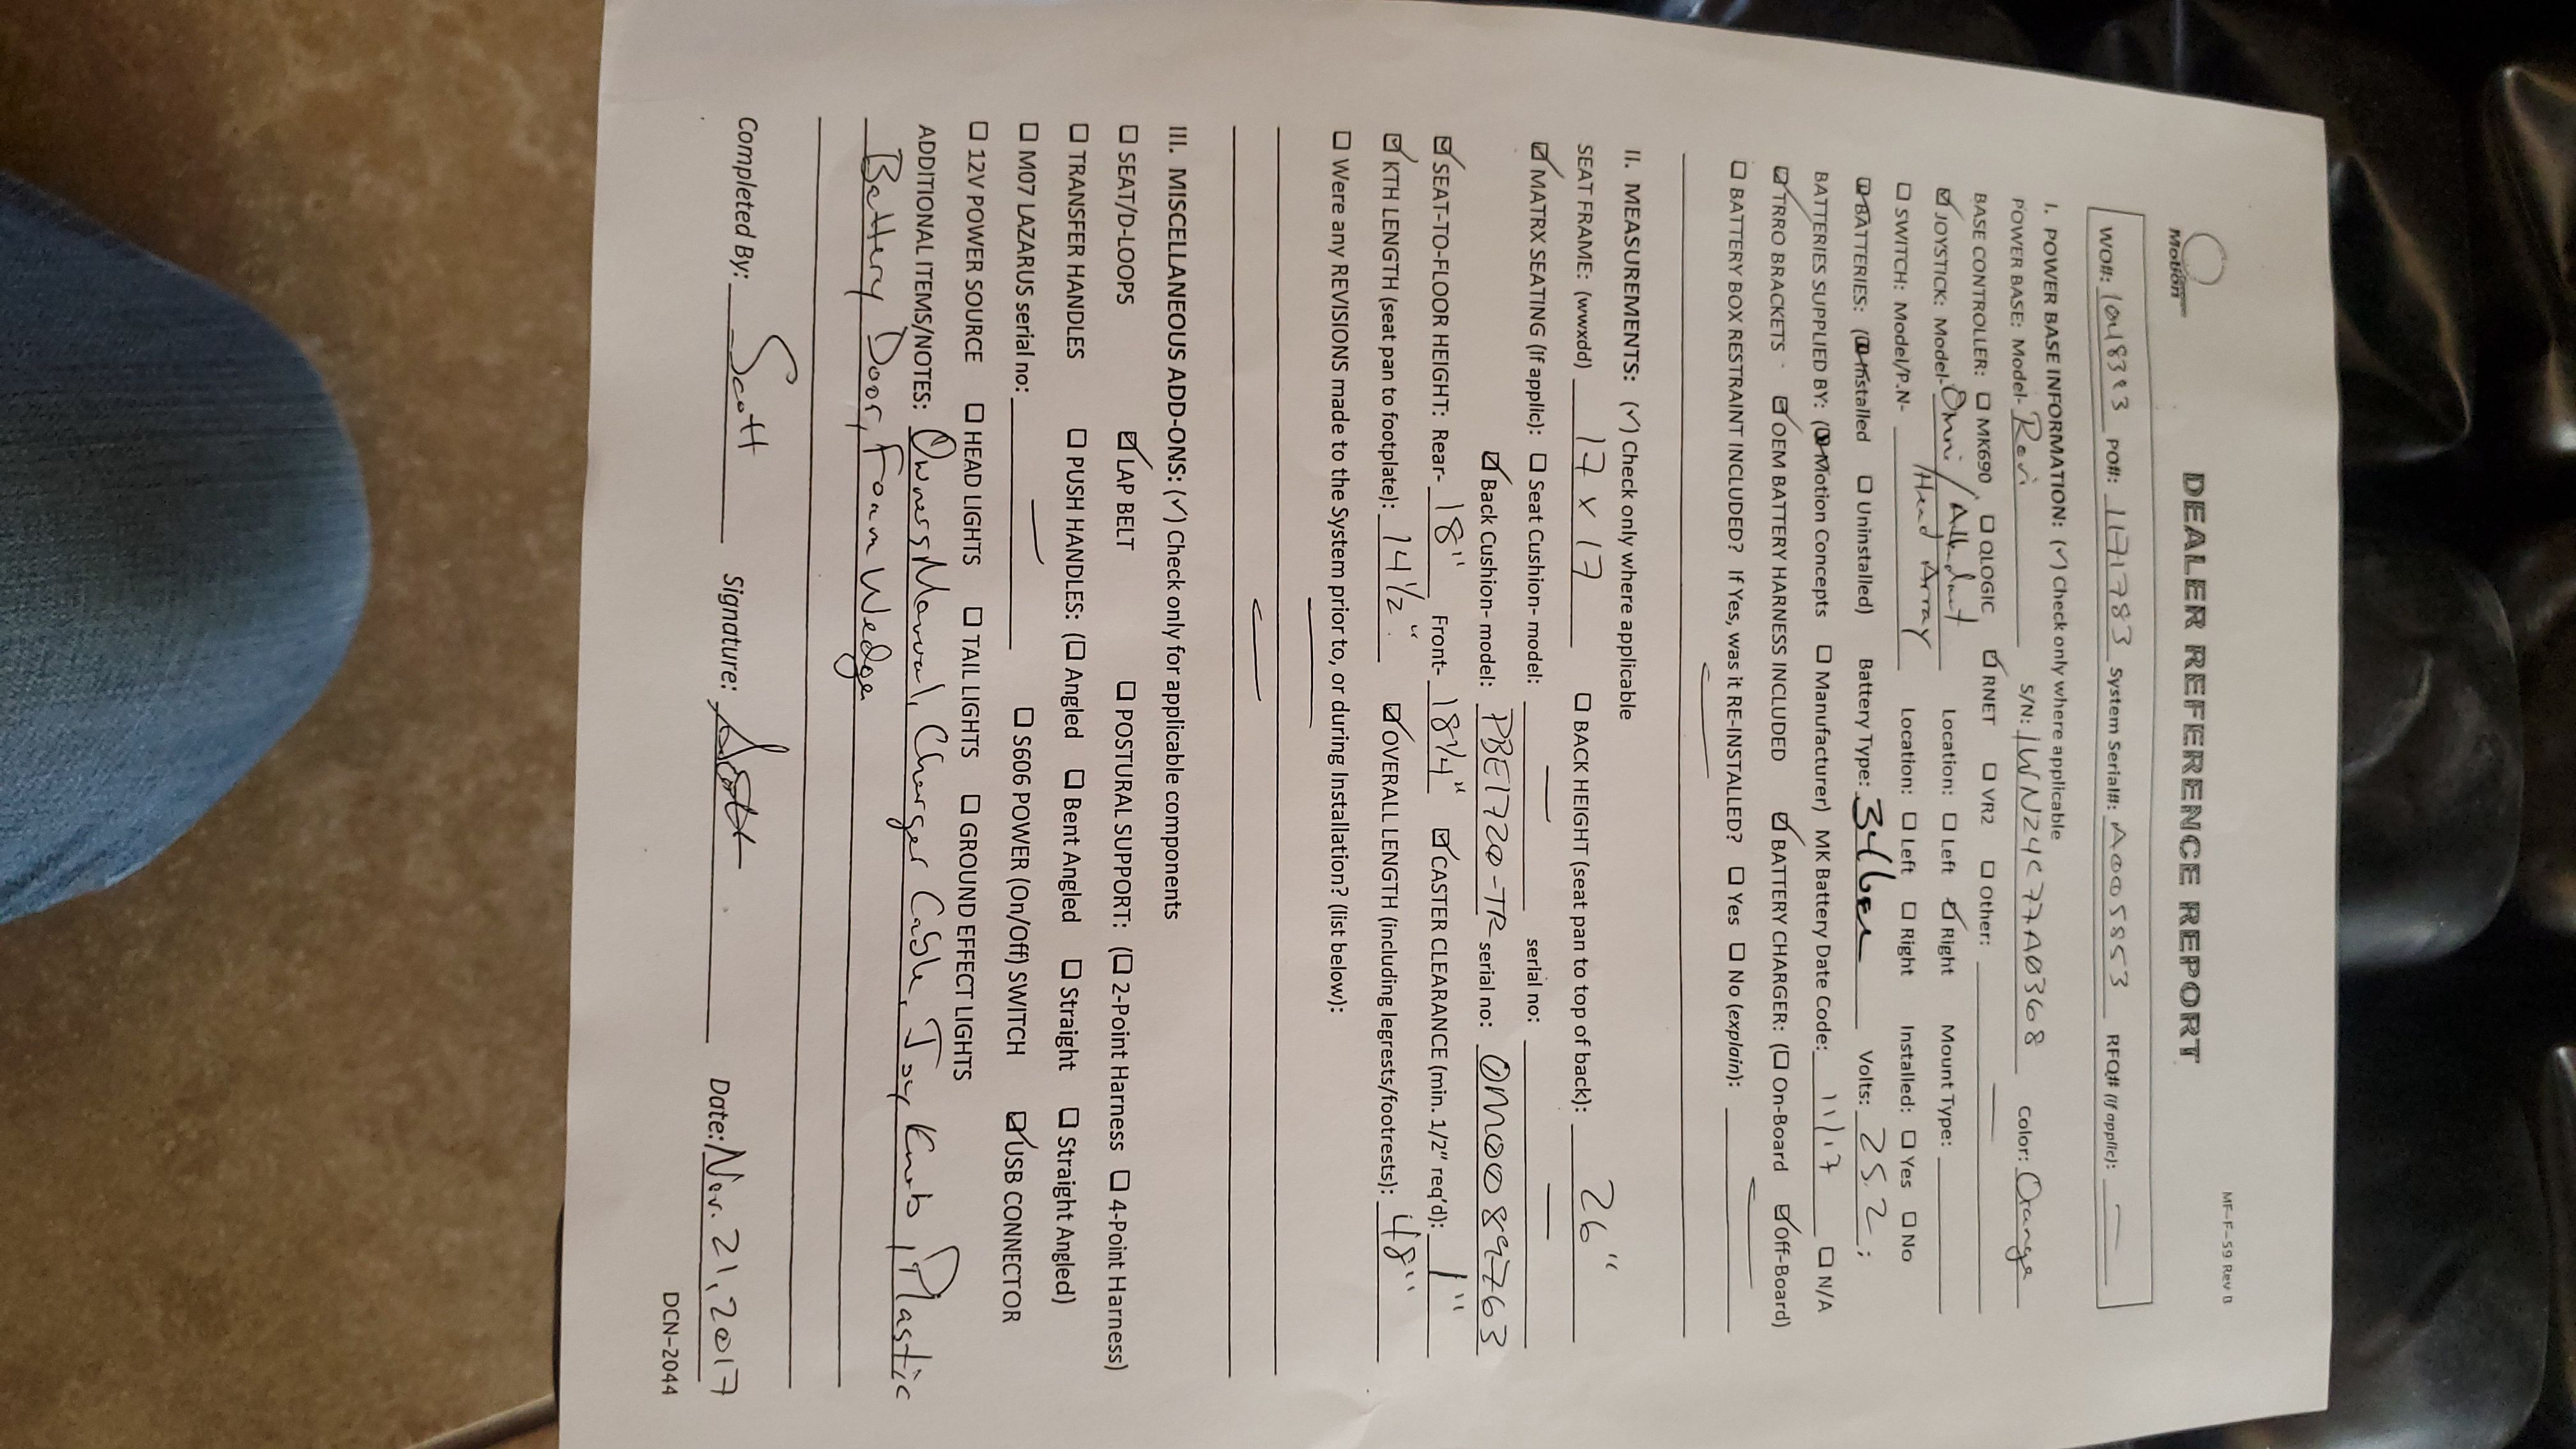 Motion
DEALER REFERENCE REPORT
MF-F-59 Rev B
WO#: PO#: 1171783 System Serial#: A0005853 RFQ# (if applic): —
I. POWER BASE INFORMATION: (✓) Check only where applicable
POWER BASE: Model- Rovi S/N: 1WN24C77A03608 Color: Orange
BASE CONTROLLER: ☐ MK690 ☐ QLOGIC ☑ RNET ☐ VR2 ☐ Other: —
☑ JOYSTICK: Model- Omni/Attendant Location: ☐ Left ☑ Right Mount Type:
/Head Array
☐ SWITCH: Model/P.N- Location: ☐ Left ☐ Right Installed: ☐ Yes ☐ No
☑ BATTERIES: (☑ Installed ☐ Uninstalled) Battery Type: Volts: 25.2 ;
BATTERIES SUPPLIED BY: (☑ Motion Concepts ☐ Manufacturer) MK Battery Date Code: 11/17 ☐ N/A
☑ TRRO BRACKETS ☑ OEM BATTERY HARNESS INCLUDED ☑ BATTERY CHARGER: (☐ On-Board ☑ Off-Board)
☐ BATTERY BOX RESTRAINT INCLUDED? If Yes, was it RE-INSTALLED? ☐ Yes ☐ No (explain): —
—
II. MEASUREMENTS: (✓) Check only where applicable
SEAT FRAME: (wwxdd) 17 x 17 ☐ BACK HEIGHT (seat pan to top of back): 26"
☑ MATRX SEATING (If applic): ☐ Seat Cushion- model: — serial no: —
☑ Back Cushion- model: PBE1720-TR serial no: 0M0089763
☑ SEAT-TO-FLOOR HEIGHT: Rear- 18" Front- 18 1/4" ☑ CASTER CLEARANCE (min. 1/2" req'd): 1"
☑ KTH LENGTH (seat pan to footplate): 14 1/2" ☑ OVERALL LENGTH (including legrests/footrests): 48"
☐ Were any REVISIONS made to the System prior to, or during Installation? (list below):
—
—
III. MISCELLANEOUS ADD-ONS: (✓) Check only for applicable components
☐ SEAT/D-LOOPS ☑ LAP BELT ☐ POSTURAL SUPPORT: (☐ 2-Point Harness ☐ 4-Point Harness)
☐ TRANSFER HANDLES ☐ PUSH HANDLES: (☐ Angled ☐ Bent Angled ☐ Straight ☐ Straight Angled)
☐ M07 LAZARUS serial no: — ☐ S606 POWER (On/Off) SWITCH ☑ USB CONNECTOR
☐ 12V POWER SOURCE ☐ HEAD LIGHTS ☐ TAIL LIGHTS ☐ GROUND EFFECT LIGHTS
ADDITIONAL ITEMS/NOTES: Owners Manual, Charger Cable, Joy Knob, Plastic
Battery Door, Foam Wedge
Completed By: Scott Signature: Scott Date: Nov. 21, 2017
DCN-2044